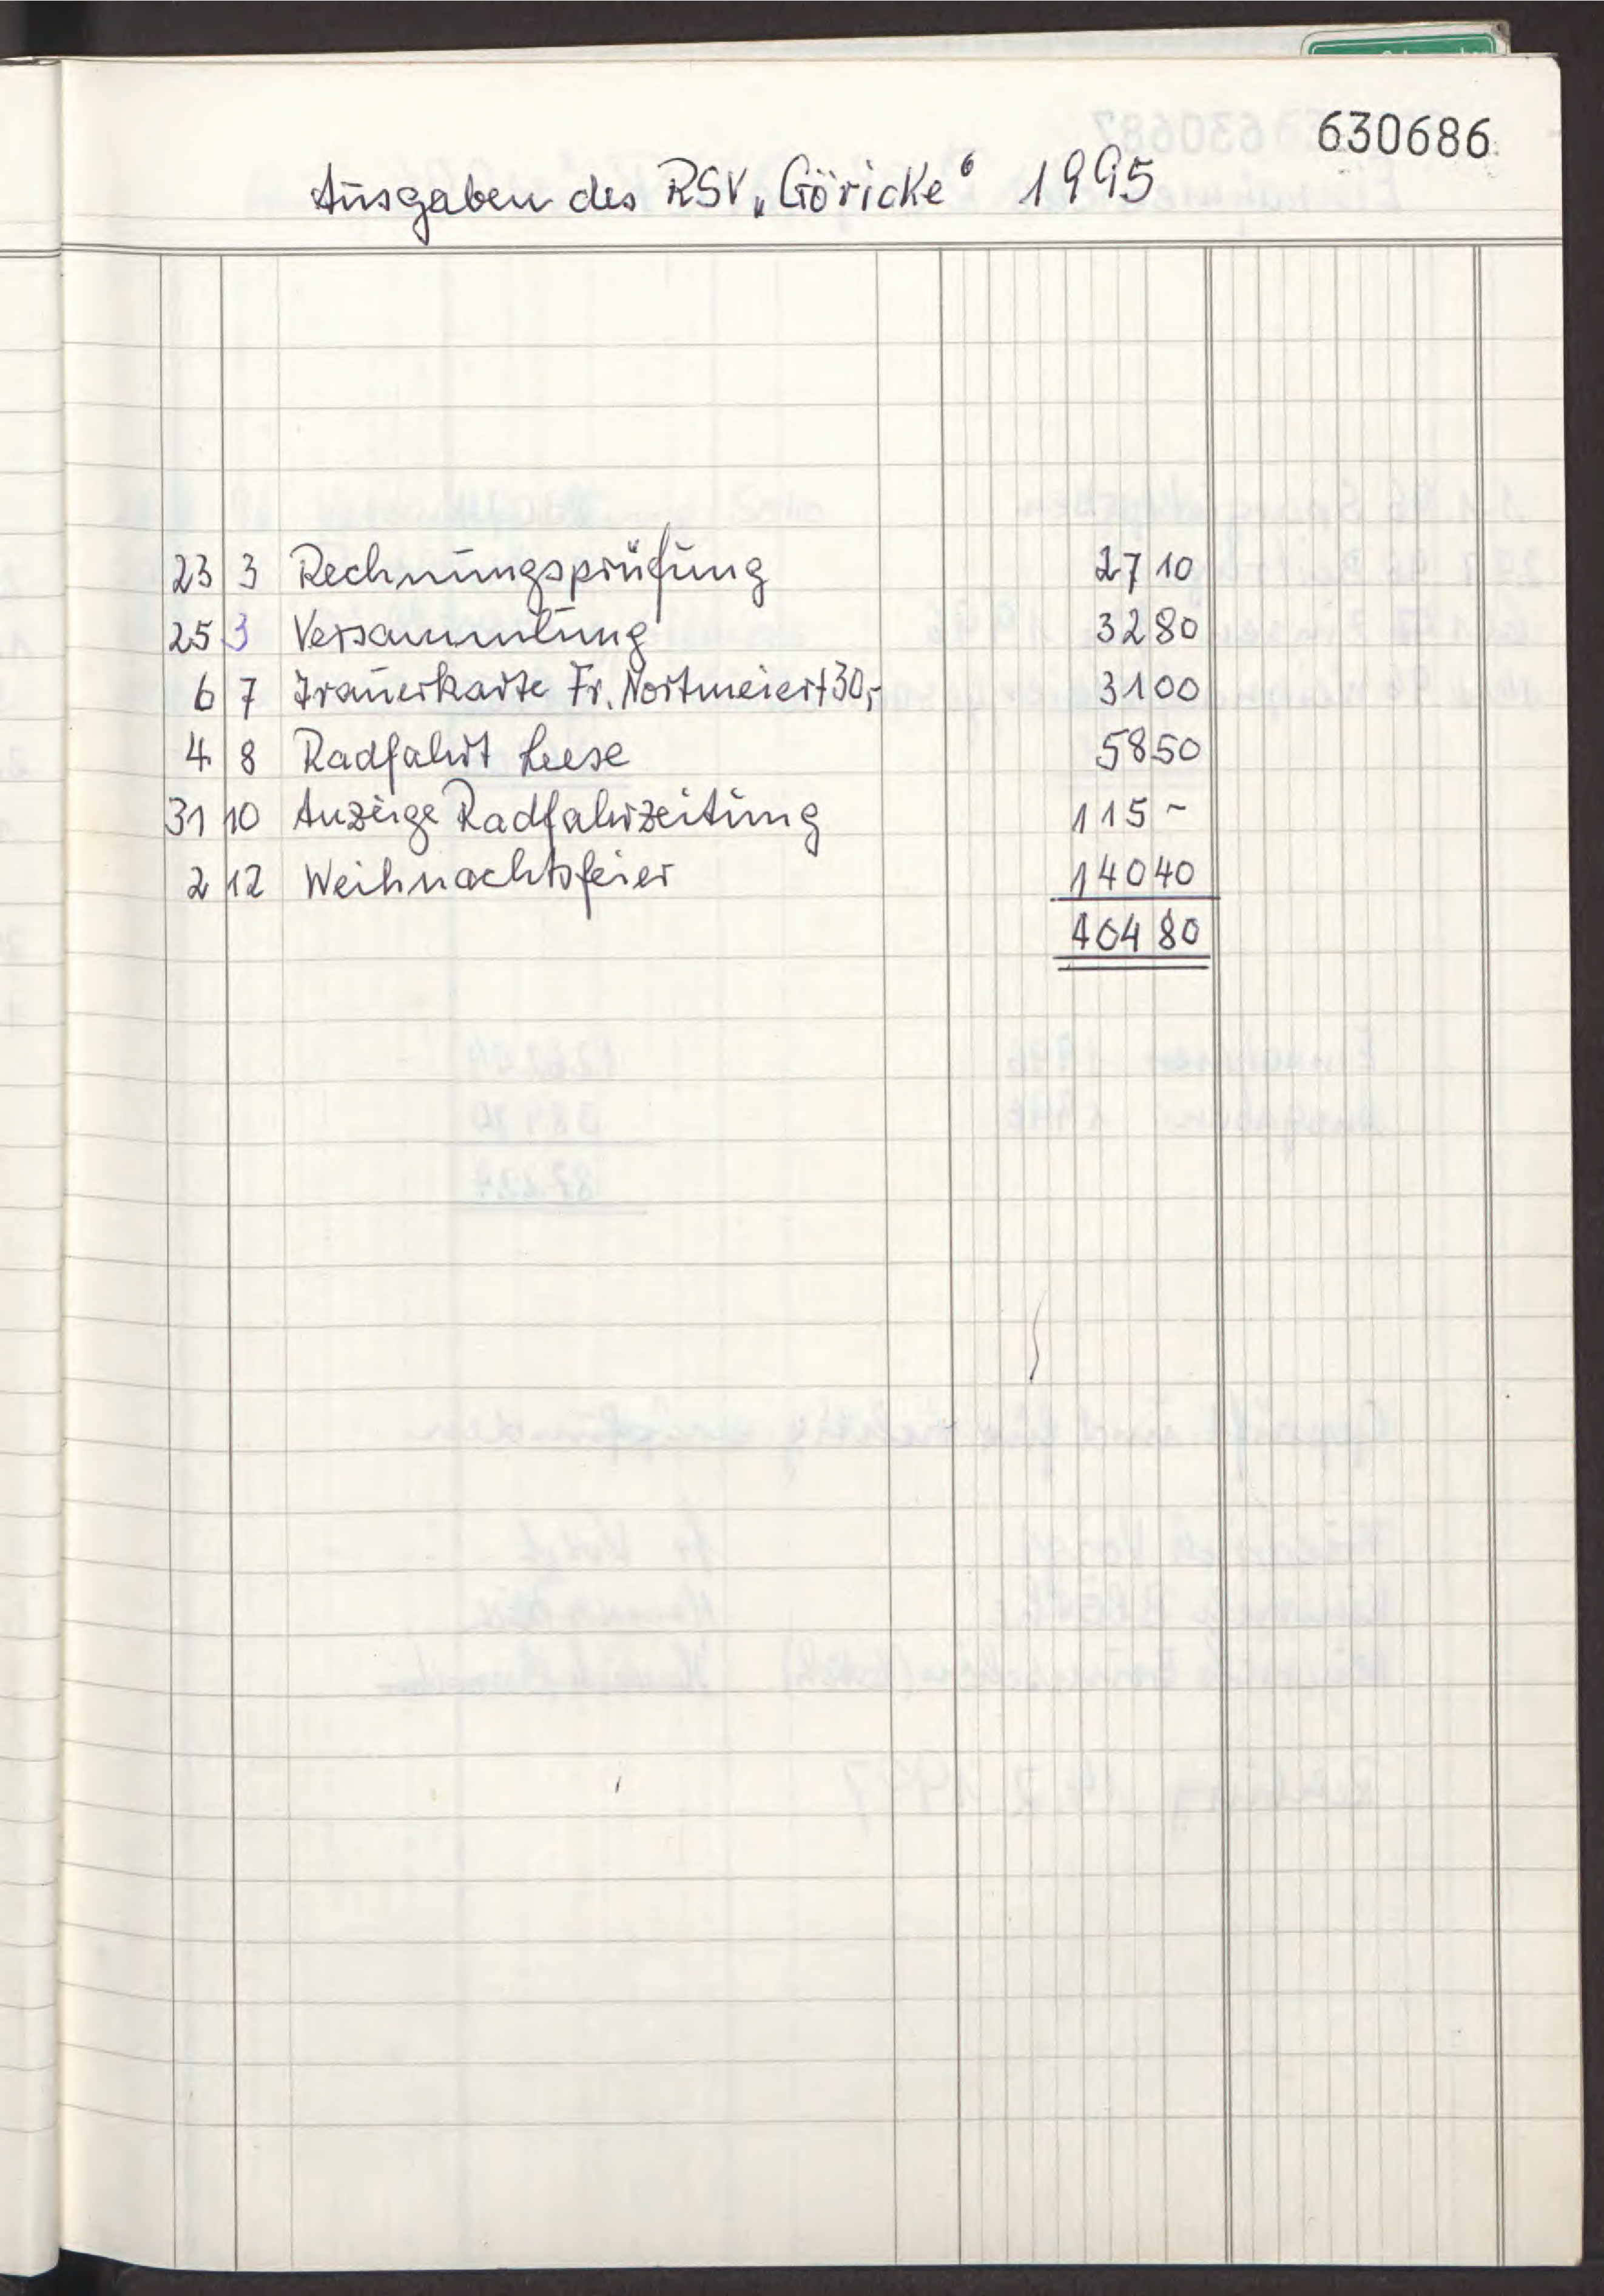 630686
Ausgaben des RSV „Göricke“ 1995
23 3 Rechnungsprüfung 27 10
25 3 Versammlung 32 80
6 7 Trauerkarte Fr. Nortmeier + 30,- 31 00
4 8 Radfahrt Leese 58 50
31 10 Anzeige Radfahrzeitung 115 -
2 12 Weihnachtsfeier 140 40
404 80